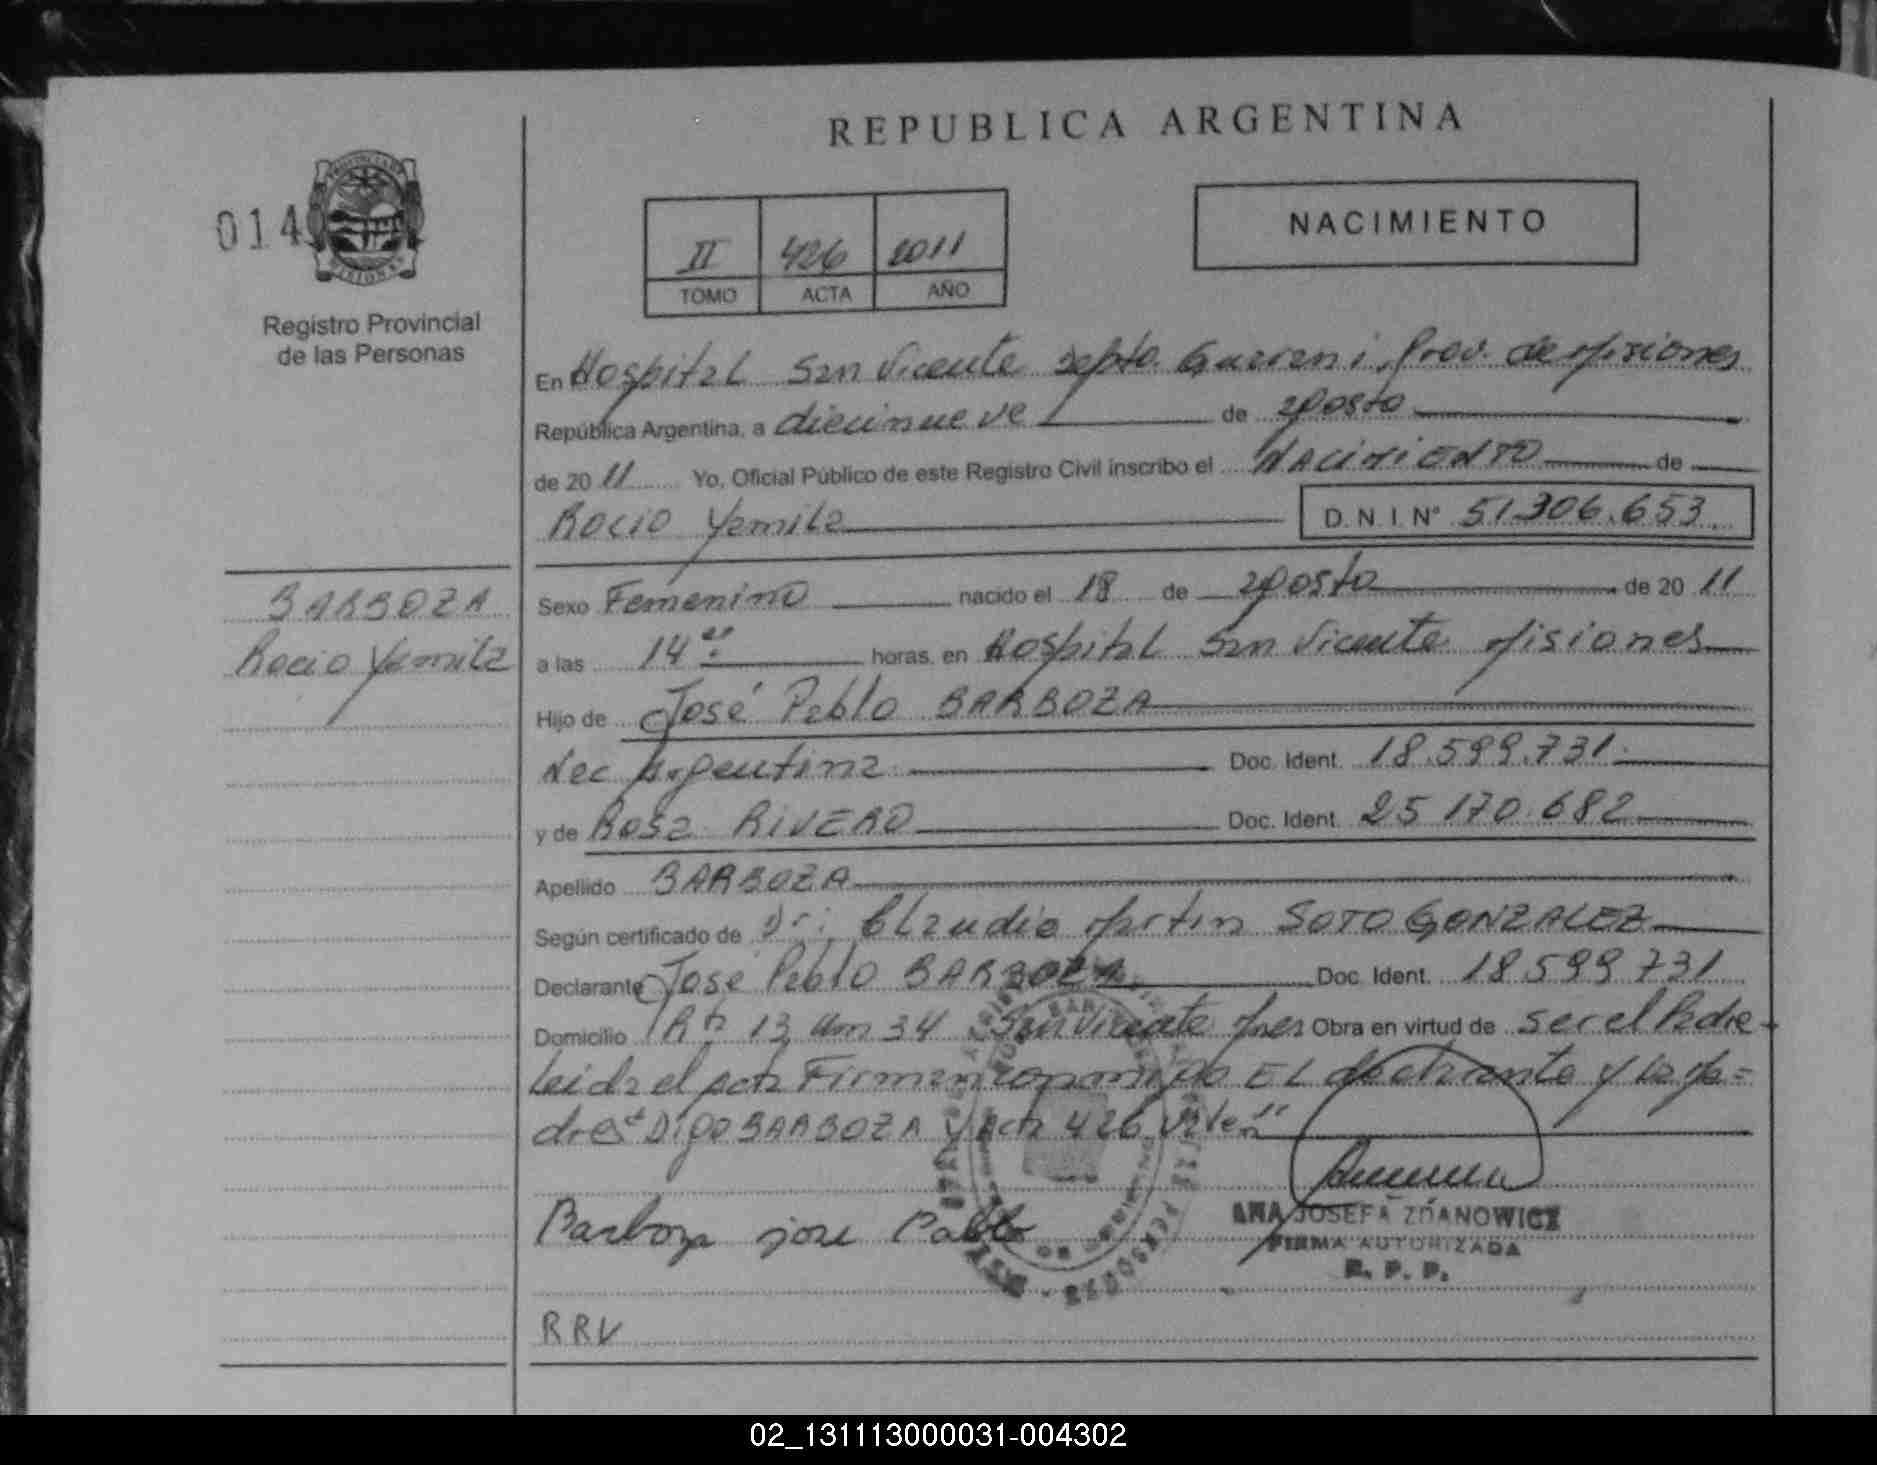 REPUBLICA ARGENTINA
014
Registro Provincial
de las Personas
II 426 2011
TOMO ACTA AÑO
NACIMIENTO
En Hospital San Vicente Depto. Guarani, Prov. de Misiones
República Argentina, a diecinueve de agosto
de 20 11 Yo, Oficial Público de este Registro Civil inscribo el NACIMIENTO de
Rocio Yamila D.N.I. N° 51.306.653
BARBOZA
Rocio Yamila
Sexo Femenino nacido el 18 de agosto de 20 11
a las 14 horas, en Hospital San Vicente Misiones
Hijo de José Pablo BARBOZA
Nac Argentina Doc. Ident. 18.599.731
y de Rosa RIVERO Doc. Ident. 25 170.682
Apellido BARBOZA
Según certificado de Dr: Claudio Martin SOTO GONZALEZ
Declarante José Pablo BARBOZA Doc. Ident. 18 599 731
Domicilio Rta 13 Km 34 San Vicente Mnes Obra en virtud de ser el Padre
Leida el acta Firman conmigo EL declarante y la Ma=
dre Digo BARBOZA y Acta 426 Valen"
Barboza jose Pablo
ANA JOSEFA ZDANOWICZ
FIRMA AUTORIZADA
R. P. P.
RRV
02_131113000031-004302